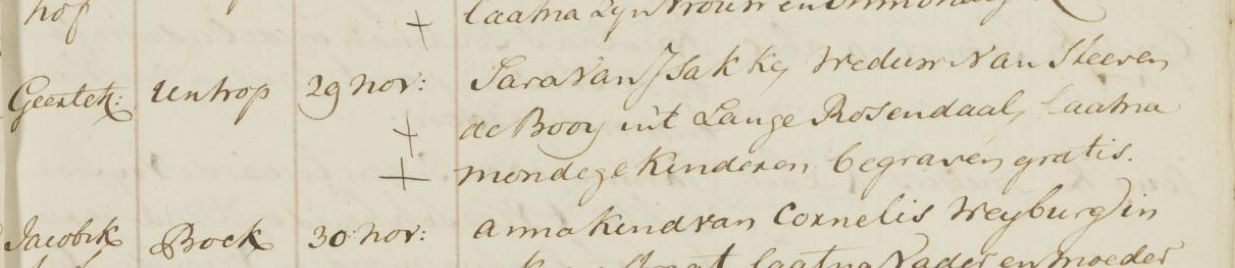 hof laatna Zyn Vrouw en Onmondig
Geertek: Untrop 29 nov: Sara Van Jsak ke, Weduw Van Steeven
de Booy uit Lange Rosendaal, laatna
mondege Kinderen begraven gratis.
Jacobik Bock 30 nov: anna Kind van Cornelis Weyburg in
laatna Vader en moeder